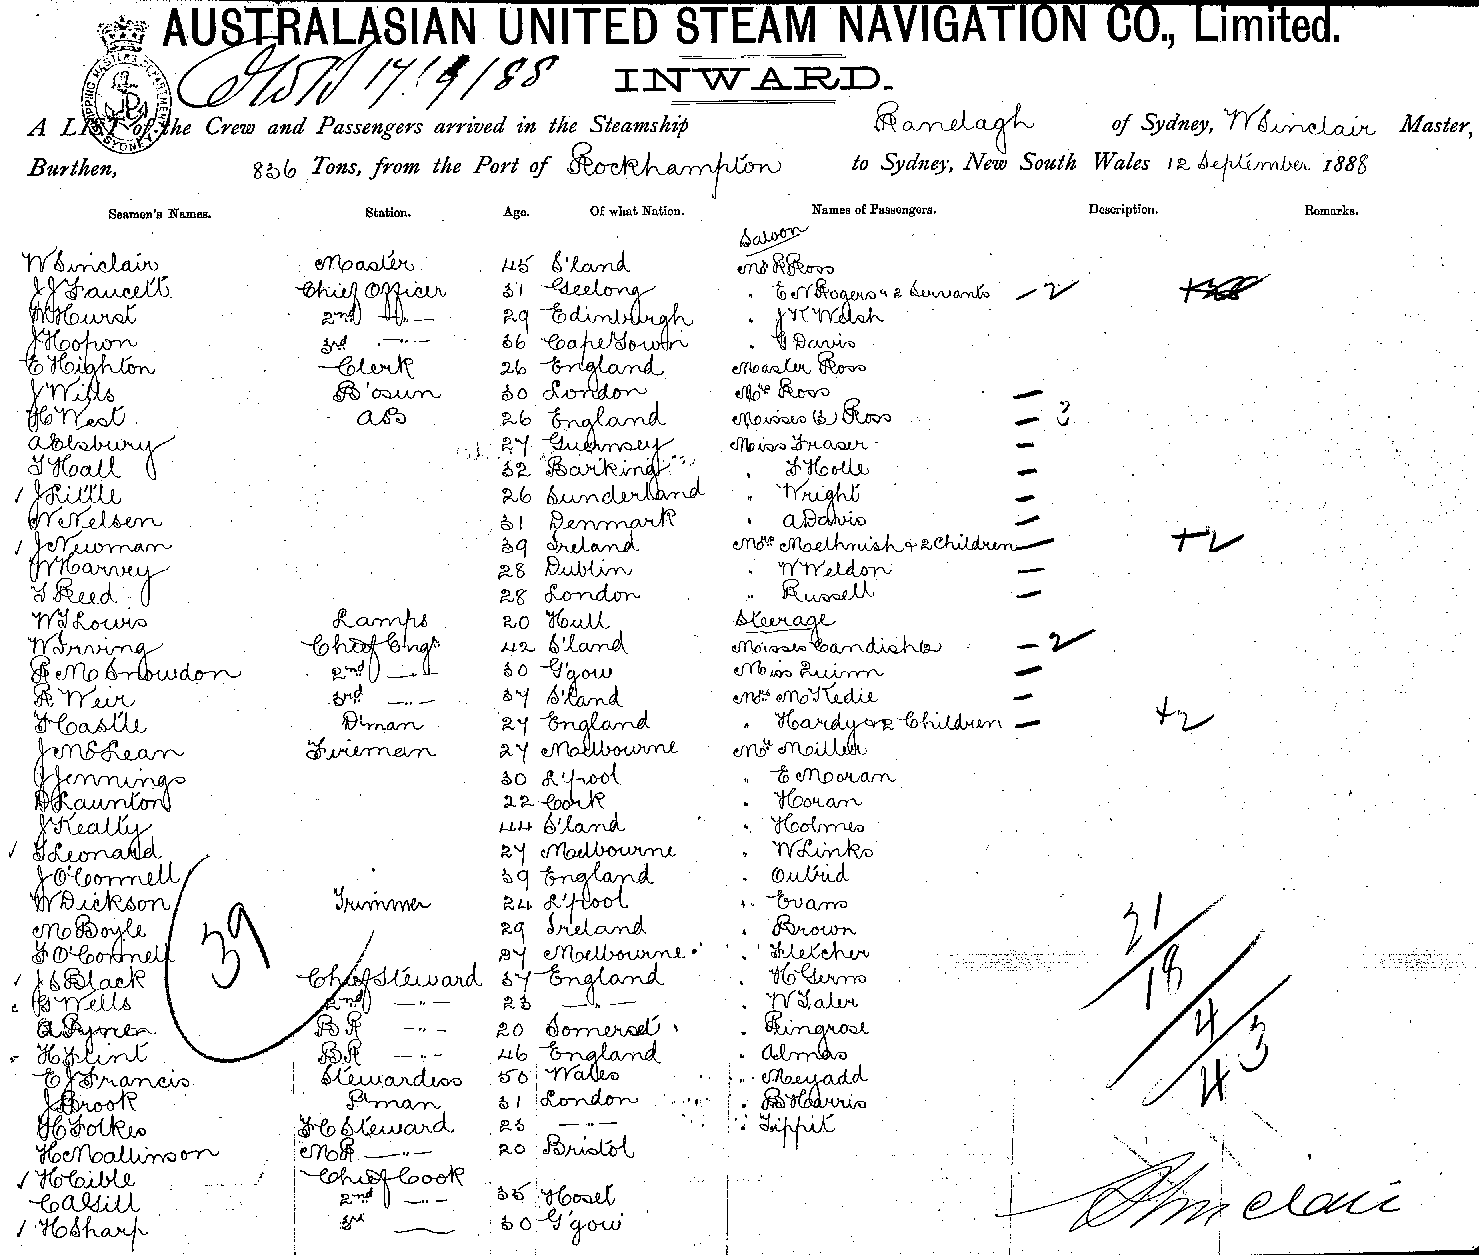 AUSTRALASIAN UNITED STEAM NAVIGATION CO., Limited.
17/9/88
INWARD.
SHIPPING MASTER'S DEPARTMENT SYDNEY
A LIST of the Crew and Passengers arrived in the Steamship Ranelagh of Sydney, W Sinclair Master,
Burthen, 836 Tons, from the Port of Rockhampton to Sydney, New South Wales 12 September 1888
Seamen's Names. Station. Age. Of what Nation. Names of Passengers. Description. Remarks.
Saloon
W Sinclair Master 45 S'land Mr R Ross
J J Faucett Chief Officer 31 Geelong " E N Rogers & 2 Servants - 2
W Hurst 2nd -"- 29 Edinburgh " J K Welsh
J Hopon 3rd -"- 36 Cape Town " G Davis
E Highton Clerk 26 England Master Ross
J Wills B'osun 30 London Mrs Ross -
H West AB 26 England Misses (3) Ross - 3
A Elsbury 27 Guernsey Miss Fraser -
T Hall 32 Barking " F Holle -
J Little 26 Sunderland " Wright -
W Nelsen 31 Denmark " A Davis -
J Newman 39 Ireland Mrs Methnish & 2 Children - +2
W Harvey 28 Dublin " W Weldon -
T Reed 28 London " Russell -
W T Lowis Lamps 20 Hull Steerage
W Irving Chief Engr 42 S'land Misses Candish (2) - 2
R M Snowdon 2nd -"- 30 G'gow Miss Quinn -
R Weir 3rd -"- 37 S'land Mrs McKedie -
F Castle D'man 27 England " Hardy & 2 Children - +2
J McLean Fireman 27 Melbourne Mr Miller
J Jennings 30 L'pool " E Moran
D Launton 22 Cork " Horan
J Kealty 44 S'land " Holmes
T Leonard 27 Melbourne " W Links
J O'Connell 39 England " Outrid
W Dickson Trimmer 24 L'pool " Evans
M Boyle 29 Ireland " Brown
F O'Connell 27 Melbourne " Fletcher
J S Black Chief Steward 37 England " H Germs
G Wells 2nd -"- 23 -"- " W Taler
A Rymer BR -"- 20 Somerset " Ringrose
H Flint BR -"- 46 England " Almas
E J Francis Stewardess 50 Wales " Meyadd
J Brook P'man 31 London " B Harris
H Folkes F C Steward 23 -"- " Tippit
H Mallinson MR -"- 20 Bristol
H Cible Chief Cook
C A Gill 2nd -"- 35
H Sharp 3rd 30 G'gow
39
21
18
4
43
4
Sinclair